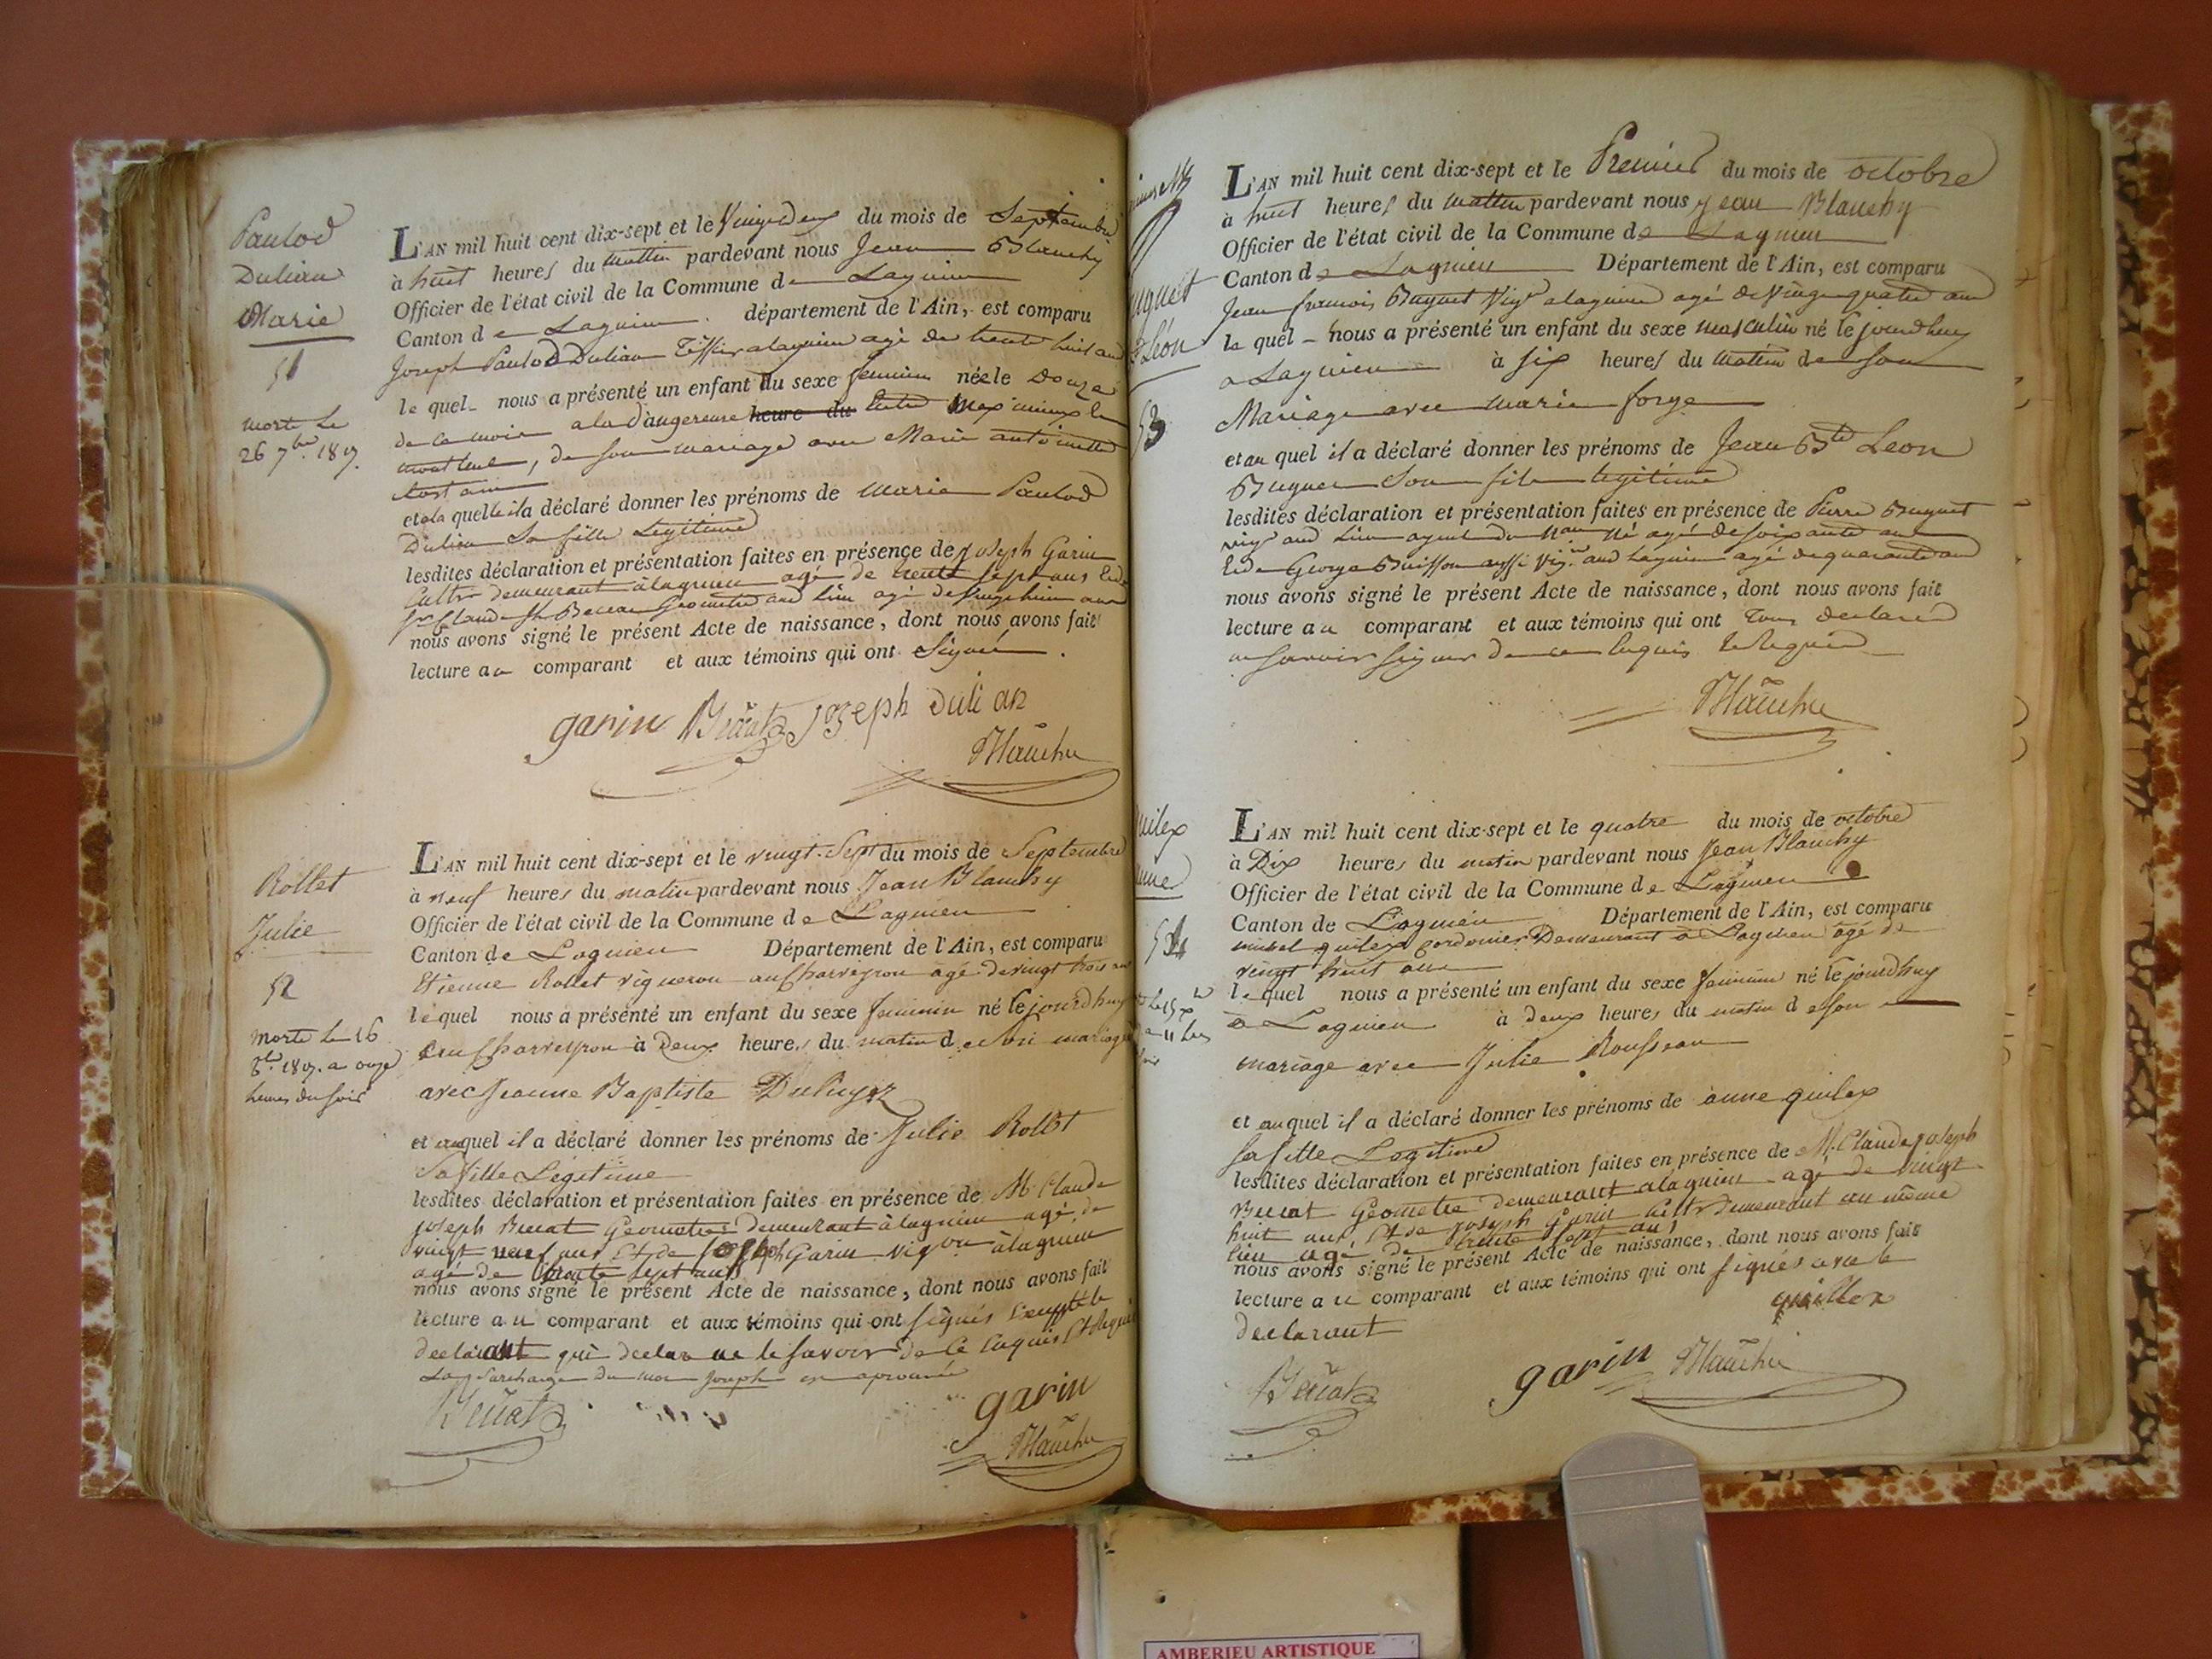 Paulod
Dulian
Marie
51
morte le
26 7bre 1817.
L'AN mil huit cent dix-sept et le Vingt deux du mois de Septembre
à huit heures du mattin pardevant nous Jean Blanchy
Officier de l'état civil de la Commune de Lagnieu
Canton de Lagnieu. département de l'Ain, est comparu
Joseph Paulod Dulian Tissier a lagnieu agé de trente huit ans
lequel nous a présenté un enfant du sexe feminin née le Douze
de ce mois a la dangereuse heure du
, de son mariage avec Marie antoinette
et a la quelle il a déclaré donner les prénoms de Marie Paulod
Dulian Sa fille Legitime
lesdites déclaration et présentation faites en présence de Joseph Garin
cultr demeurant à lagnieu agé de trente sept ans et de
Sr Claude Jh Geometre aud lieu agé de vingt huit ans
nous avons signé le présent Acte de naissance, dont nous avons fait
lecture au comparant et aux témoins qui ont Signé.
garin Joseph Dulian
Blanchy
Rollet
Julie
52
Morte le 16
8bre 1817. a onze
heures du soir
L'AN mil huit cent dix-sept et le vingt-Sept du mois de Septembre
à neuf heures du matin pardevant nous Jean Blanchy
Officier de l'état civil de la Commune de Lagnieu
Canton de Lagnieu Département de l'Ain, est comparu
Etienne Rollet vigneron au Charveyron agé de vingt trois ans
lequel nous a présenté un enfant du sexe feminin né le jourd'huy
au Charveyron à Deux heures du matin de son mariage
avec Jeanne Baptiste Dupuyz
et auquel il a déclaré donner les prénoms de Julie Rollet
Sa fille Legitime
lesdites déclaration et présentation faites en présence de Mr Claude
joseph Geometre demeurant à lagnieu agé de
vingt neuf ans Et de joseph Garin vigron à lagnieu
agé de trente sept ans
nous avons signé le présent Acte de naissance, dont nous avons fait
lecture au comparant et aux témoins qui ont signés excepté le
declarant qui declare ne le savoir de ce enquis Et requis
La Surcharge du mot joseph est aprouvée
garin
Blanchy
Léon
53
L'AN mil huit cent dix-sept et le Premier du mois de octobre
à huit heures du mattin pardevant nous Jean Blanchy
Officier de l'état civil de la Commune de Lagnieu
Canton de Lagnieu Département de l'Ain, est comparu
Jean francois Buguet Vigr a lagnieu agé de Vingt quatre ans
le quel nous a présenté un enfant du sexe masculin né le jourdhuy
a Lagnieu à six heures du matin de son
Mariage avec marie forge
et au quel il a déclaré donner les prénoms de Jean Bte Leon
Buguet Son fils legitime
lesdites déclaration et présentation faites en présence de Pierre Buguet
vigr aud Lieu agé de soixante ans
et de George Buisson aussi Vigr aud Lagnieu agé de quarante ans
nous avons signé le présent Acte de naissance, dont nous avons fait
lecture au comparant et aux témoins qui ont Tous declaré
ne savoir signer de ce enquis et requis
Blanchy
54
L'AN mil huit cent dix-sept et le quatre du mois de octobre
à Dix heures du matin pardevant nous Jean Blanchy
Officier de l'état civil de la Commune de Lagnieu
Canton de Lagnieu Département de l'Ain, est comparu
michel quilex cordonier Demeurant à Lagnieu agé de
vingt huit ans
lequel nous a présenté un enfant du sexe feminin né le jourdhuy
à Lagnieu à deux heures du matin de son
mariage avec Julie Rousseau
et auquel il a déclaré donner les prénoms de anne quilex
sa fille Legitime
lesdites déclaration et présentation faites en présence de Mr Claude joseph
Geometre demeurant à lagnieu agé de vingt
huit ans, Et de joseph Garin cultr demeurant au même
lieu agé de trente sept ans
nous avons signé le présent Acte de naissance, dont nous avons fait
lecture au comparant et aux témoins qui ont signés avec le
declarant
quillex
garin Blanchy
AMBERIEU ARTISTIQUE